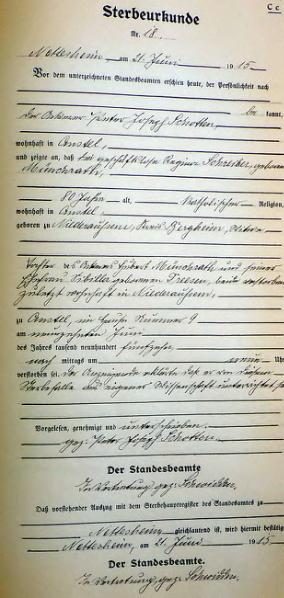 C c
Sterbeurkunde
Nr. 18.
Nettersheim, am 21. Juni 1915
Vor dem unterzeichneten Standesbeamten erschien heute, der Persönlichkeit nach
be kannt,
der Ackerer Peter Joseph Schotten,
wohnhaft in
und zeigte an, daß geborene
Münchrath,
80 Jahre alt, katholischer Religion,
wohnhaft in
geboren zu Niederaussem, Kreis Bergheim,
Tochter des Ackerers Münchrath und seiner
Ehefrau Sibilla geborenen beide verstorben
zuletzt wohnhaft in Niederaussem,
zu im Hause Nummer 9
am neunzehnten Juni
des Jahres tausend neunhundert fünfzehn
nach mittags um neun Uhr
verstorben sei. Der Anzeigende erklärte daß er von diesem
Sterbefalle aus eigener Wissenschaft unterrichtet sei
Vorgelesen, genehmigt und unterschrieben.
gez. Peter Joseph Schotten.
Der Standesbeamte
In Vertretung gez.
Daß vorstehender Auszug mit dem Sterbehauptregister des Standesamtes zu
Nettersheim gleichlautend ist, wird hiermit bestätigt
Nettersheim, am 21. Juni 1915
Der Standesbeamte.
In Vertretung gez.